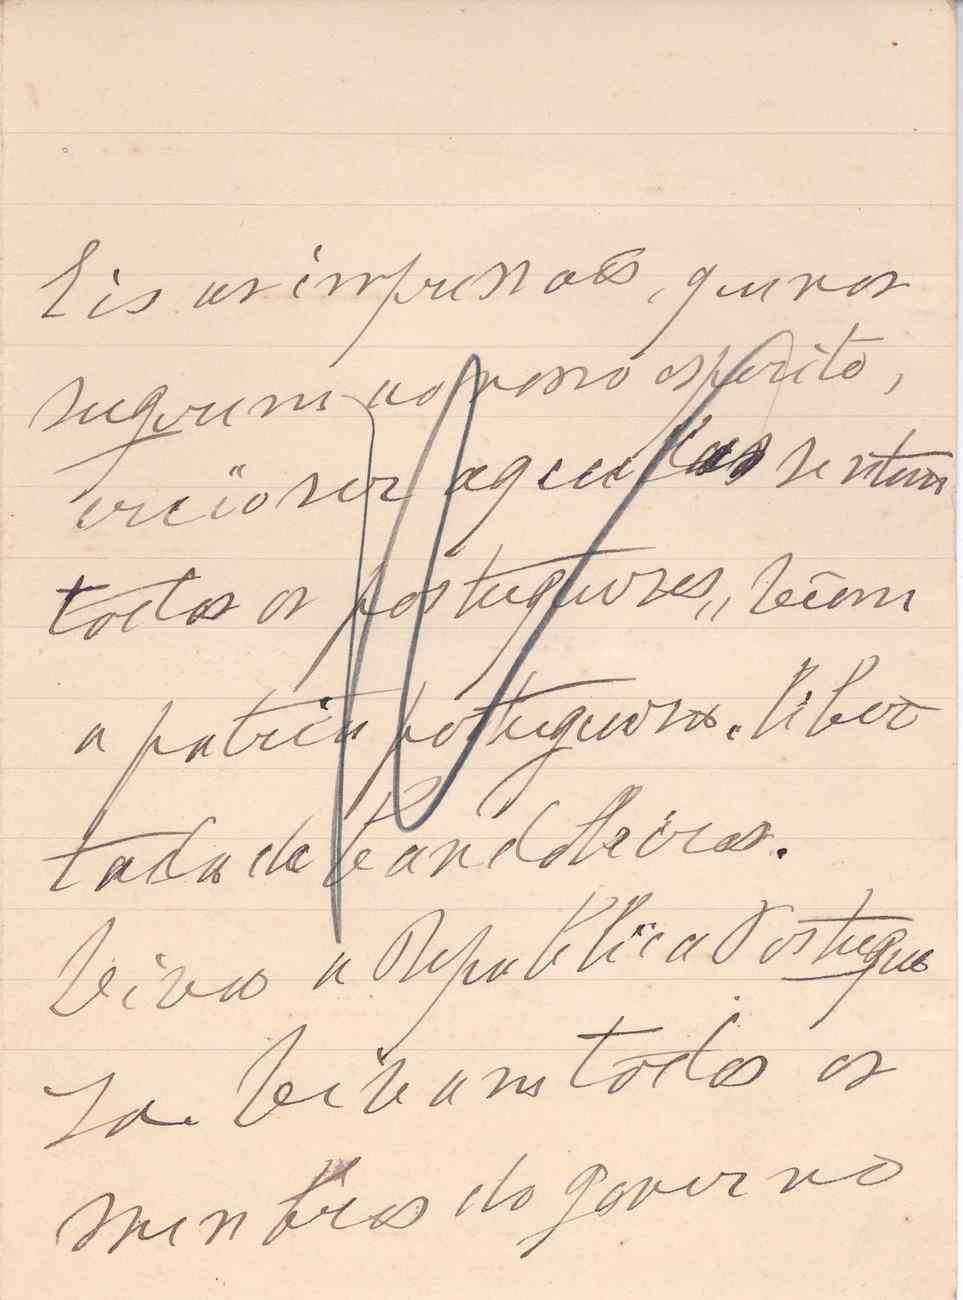 Eis as impressoês, que nos
sugerem ao nosso esperito,
creio ser aquellas sentem
todos os portuguezes, vêem
a patria portugueza. liber
tada de bandoleiros.
Viva a Republica Portugue
za. Vivam todos os
menbros do governo